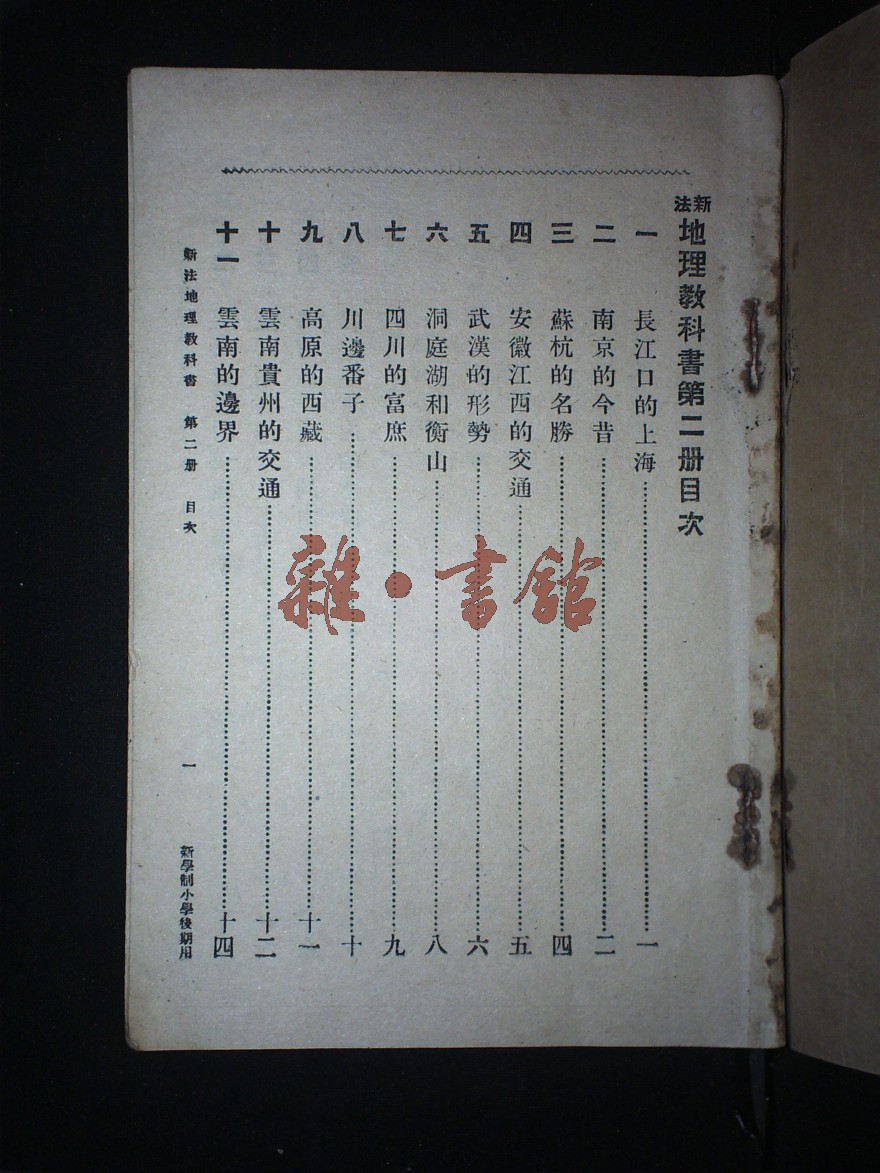 新法地理教科書第二册目次
一 長江口的上海……一
二 南京的今昔……二
三 蘇杭的名勝……四
四 安徽江西的交通……五
五 武漢的形勢……六
六 洞庭湖和衡山……八
七 四川的富庶……九
八 川邊番子……十
九 高原的西藏……十一
十 雲南貴州的交通……十二
十一 雲南的邊界……十四
新法地理教科書 第二册 目次 一 新學制小學後期用
雜·書館